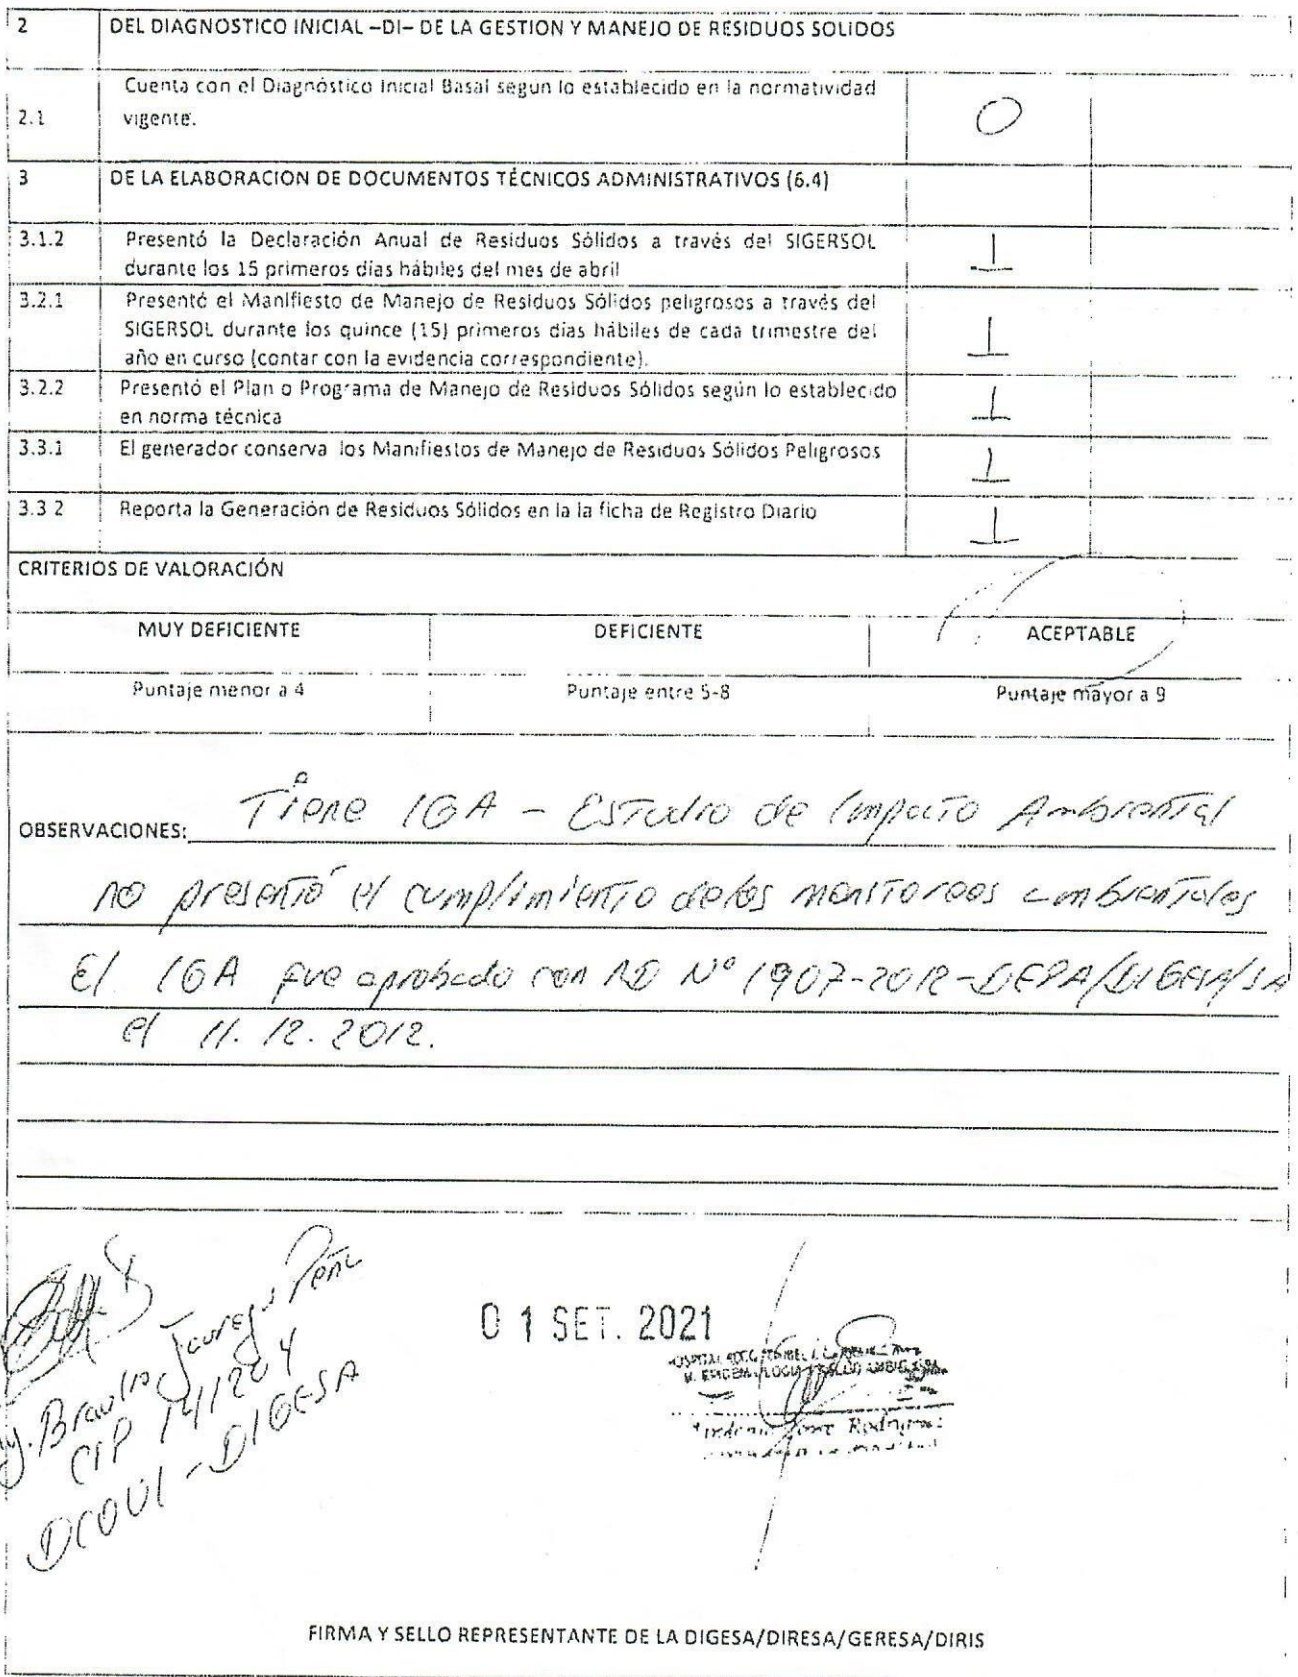 2 DEL DIAGNOSTICO INICIAL –DI– DE LA GESTION Y MANEJO DE RESIDUOS SOLIDOS
Cuenta con el Diagnóstico Inicial Basal segun lo establecido en la normatividad
2.1 vigente. 0
3 DE LA ELABORACION DE DOCUMENTOS TÉCNICOS ADMINISTRATIVOS (6.4)
3.1.2 Presentó la Declaración Anual de Residuos Sólidos a través del SIGERSOL
durante los 15 primeros días hábiles del mes de abril 1
3.2.1 Presentó el Manifiesto de Manejo de Residuos Sólidos peligrosos a través del
SIGERSOL durante los quince (15) primeros dias hábiles de cada trimestre del
año en curso (contar con la evidencia correspondiente). 1
3.2.2 Presentó el Plan o Programa de Manejo de Residuos Sólidos según lo establecido
en norma técnica 1
3.3.1 El generador conserva los Manifiestos de Manejo de Residuos Sólidos Peligrosos 1
3.3 2 Reporta la Generación de Residuos Sólidos en la la ficha de Registro Diario 1
CRITERIOS DE VALORACIÓN
MUY DEFICIENTE DEFICIENTE ACEPTABLE
Puntaje menor a 4 Puntaje entre 5-8 Puntaje mayor a 9
OBSERVACIONES: Tiene IGA - Estudio de Impacto Ambiental
no presentó el cumplimiento de los monitoreos ambientales
El IGA fue aprobado con RD N° 1907-2012-DEPA/DIGESA/SA
el 11.12.2012.
Braulio Jauregui Peña
CIP 141204
DIGESA
01 SET. 2021
HOSPITAL
Rodriguez
FIRMA Y SELLO REPRESENTANTE DE LA DIGESA/DIRESA/GERESA/DIRIS